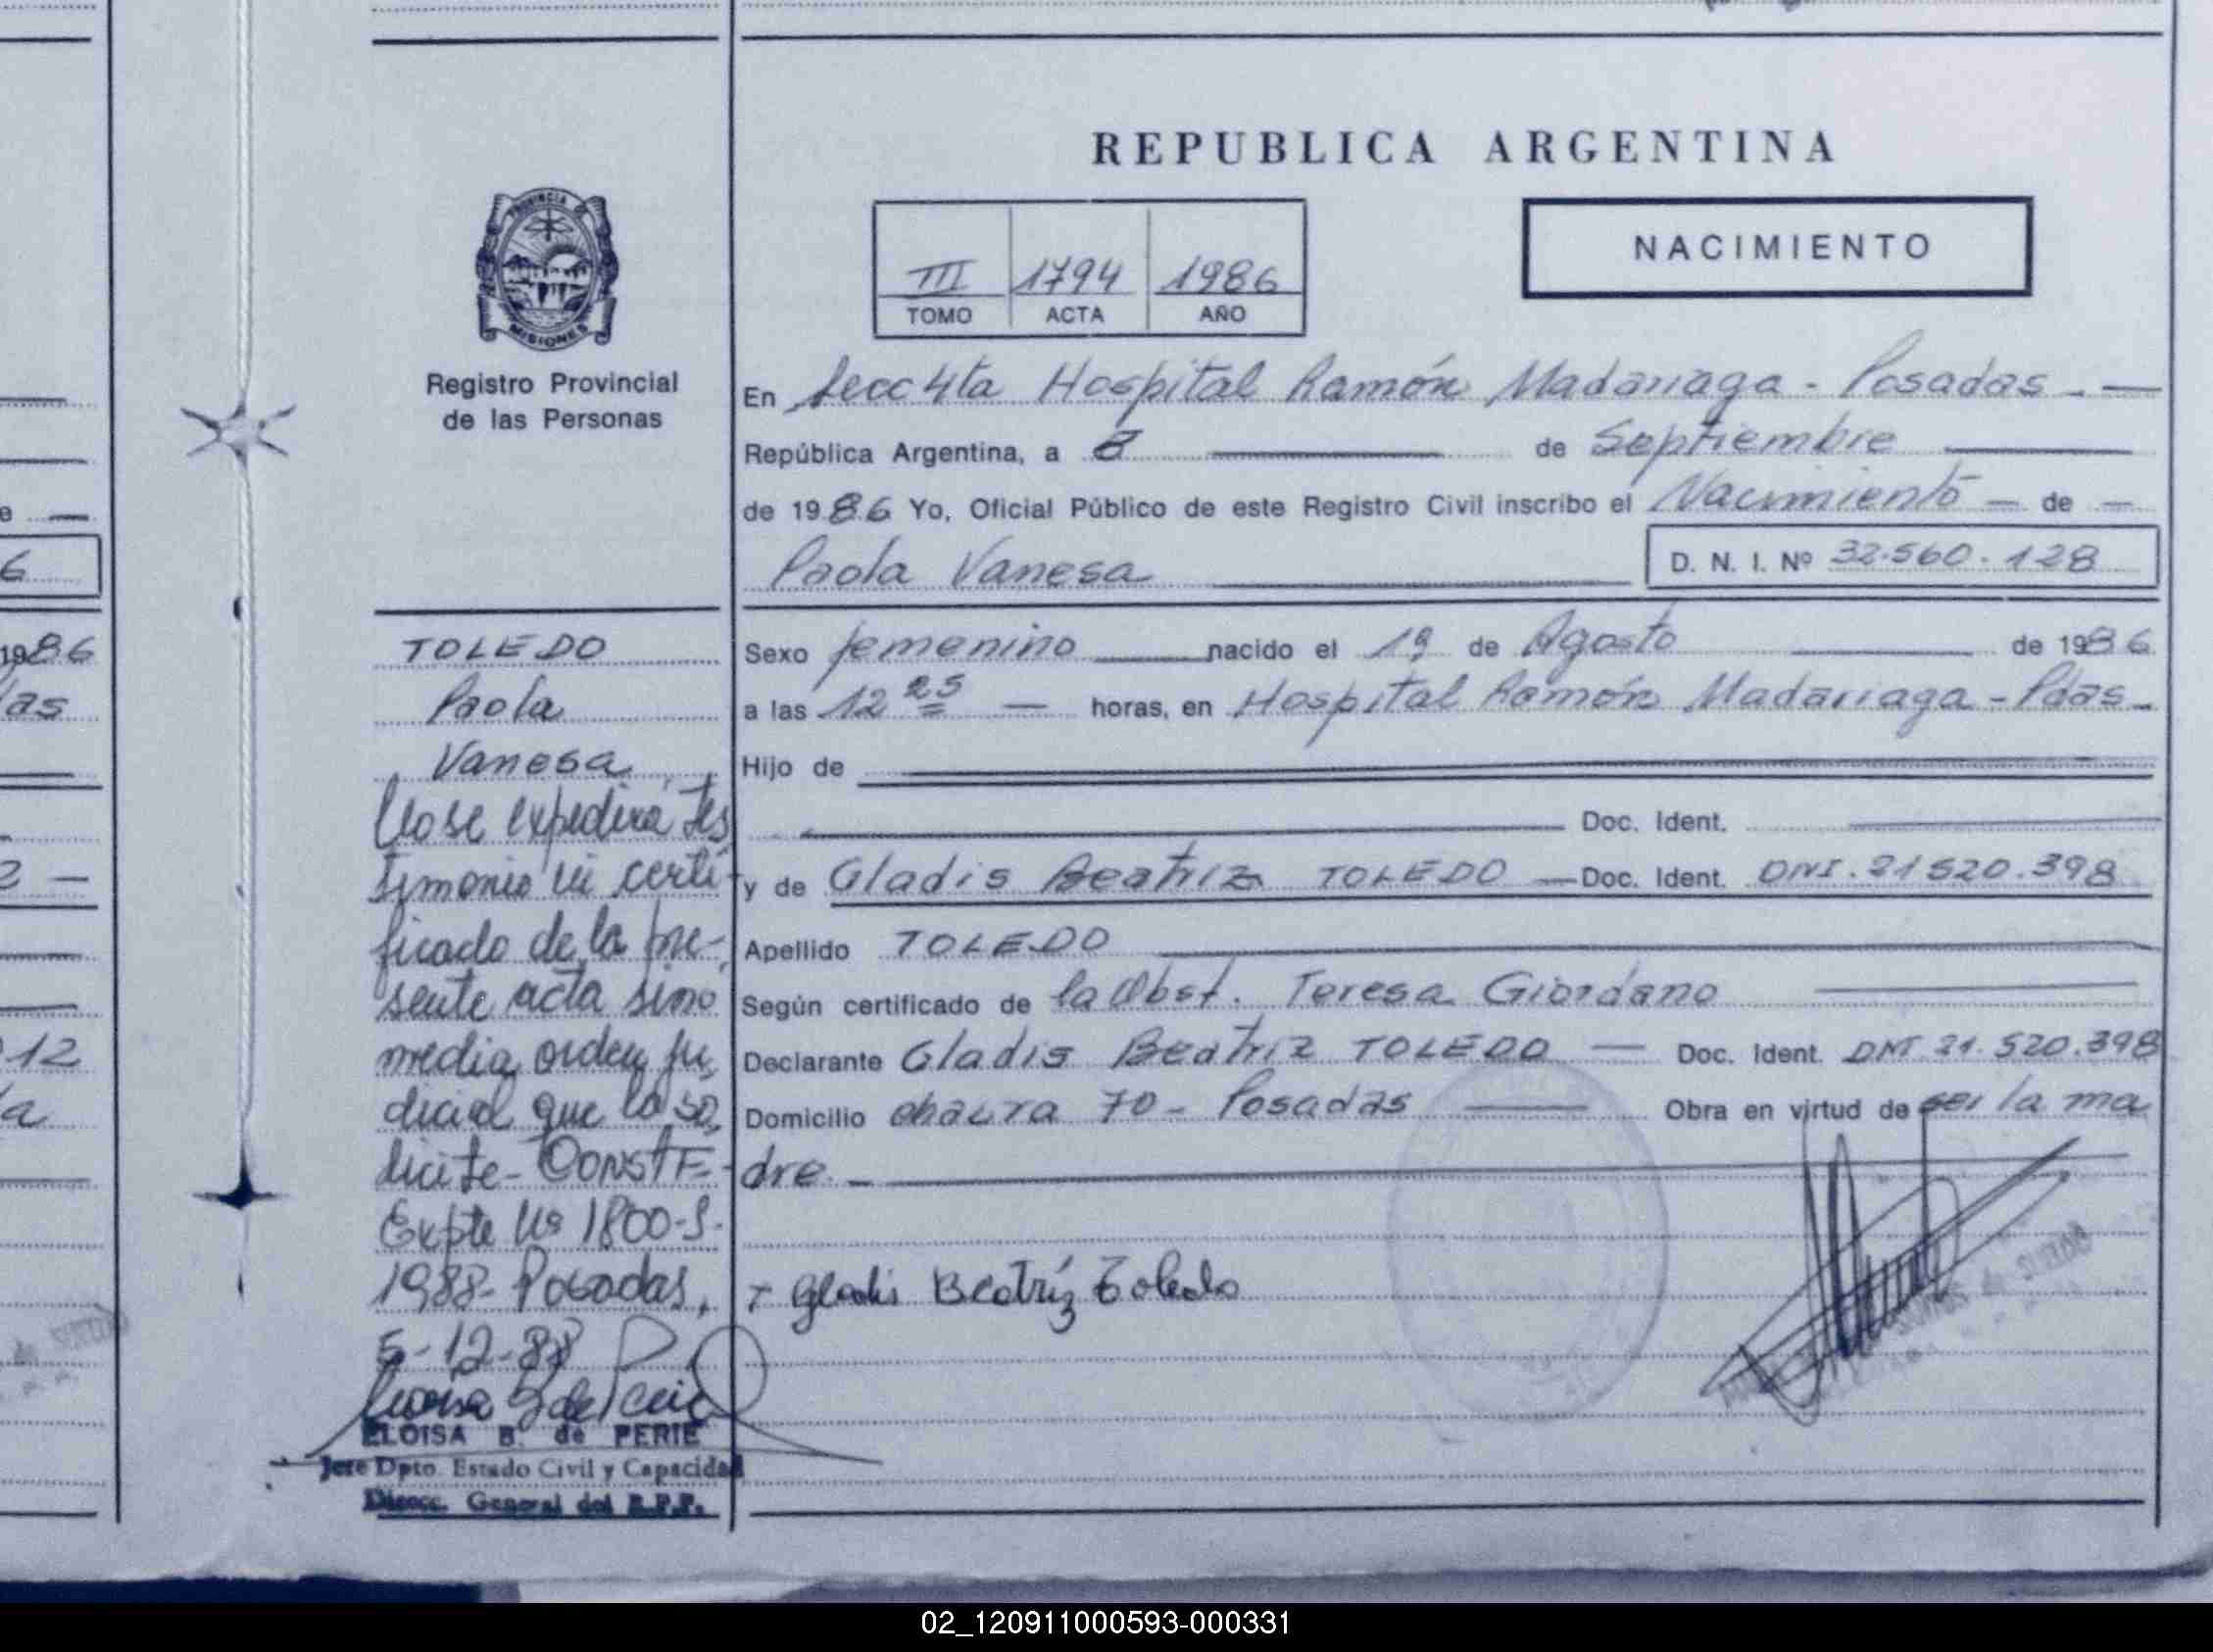 REPUBLICA ARGENTINA
III 1794 1986
TOMO ACTA AÑO
NACIMIENTO
PROVINCIA DE
MISIONES
Registro Provincial
de las Personas
En Secc 4ta Hospital Ramón Madariaga - Posadas. —
República Argentina, a 8 de Septiembre
de 1986 Yo, Oficial Público de este Registro Civil inscribo el Nacimiento — de —
Paola Vanesa
D. N. I. Nº 32.560.128
Sexo femenino nacido el 19 de Agosto de 1986
a las 12 25 — horas, en Hospital Ramón Madariaga - Pdas.
Hijo de
Doc. Ident.
y de Gladis Beatriz TOLEDO — Doc. Ident. DNI. 21520.398
Apellido TOLEDO
Según certificado de la Obst. Teresa Giordano
Declarante Gladis Beatriz TOLEDO — Doc. Ident. DNI 21.520.398
Domicilio chacra 70 - Posadas Obra en virtud de ser la ma
dre. —
Gladis Beatríz Toledo
TOLEDO
Paola
Vanesa
No se expedirá tes
timonio ni certi-
ficado de la pre-
sente acta sino
media orden ju
dicial que lo so
licite - CONSTE-
Expte Nº 1800-S-
1988- Posadas,
5-12-88
ELOISA B. de PERIE
Jefe Dpto. Estado Civil y Capacidad
Direcc. General del R.P.P.
e
6
1986
das
2 —
12
a
de SUELDO
02_120911000593-000331